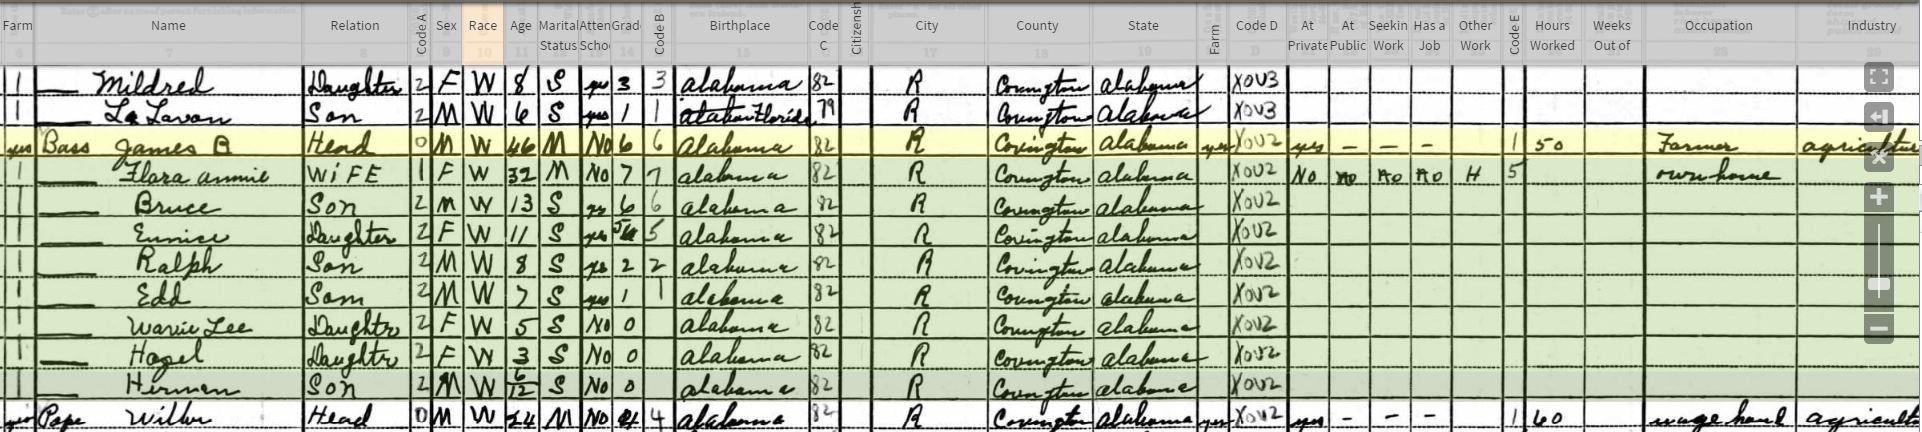 Farm Name Relation Code A Sex Race Age Marital Status Atten Schoo Grade Code B Birthplace Code C Citizensh City County State Farm Code D At Private At Public Seekin Work Has a Job Other Work Code E Hours Worked Weeks Out of Occupation Industry
6 7 8 9 10 11 12 13 14 15 17 18 19 D 28 29
1 Mildred Daughter 2 F W 8 S yes 3 3 Alabama 82 R Covington Alabama X0V3
1 La Lavon Son 2 M W 6 S yes 1 1 Florida 79 R Covington Alabama X0V3
yes Bass James B Head 0 M W 46 M No 6 6 Alabama 82 R Covington Alabama yes X0V2 yes – – – 1 50 Farmer agricultur
1 Flora Annie WiFE 1 F W 32 M No 7 7 Alabama 82 R Covington Alabama X0V2 No No No No H 5 own home
1 Bruce Son 2 M W 13 S yes 6 6 Alabama 82 R Covington Alabama X0V2
1 Eunice Daughter 2 F W 11 S yes 5 5 Alabama 82 R Covington Alabama X0V2
1 Ralph Son 2 M W 8 S yes 2 2 Alabama 82 R Covington Alabama X0V2
1 Edd Son 2 M W 7 S yes 1 1 Alabama 82 R Covington Alabama X0V2
1 Lee Daughter 2 F W 5 S No 0 Alabama 82 R Covington Alabama X0V2
1 Hazel Daughter 2 F W 3 S No 0 Alabama 82 R Covington Alabama X0V2
1 Herman Son 2 M W 6/12 S No 0 Alabama 82 R Covington Alabama X0V2
yes Pope Wilbur Head 0 M W 24 M No 4 4 Alabama 82 R Covington Alabama yes X0V2 yes – – – 1 60 wage hand agricultu